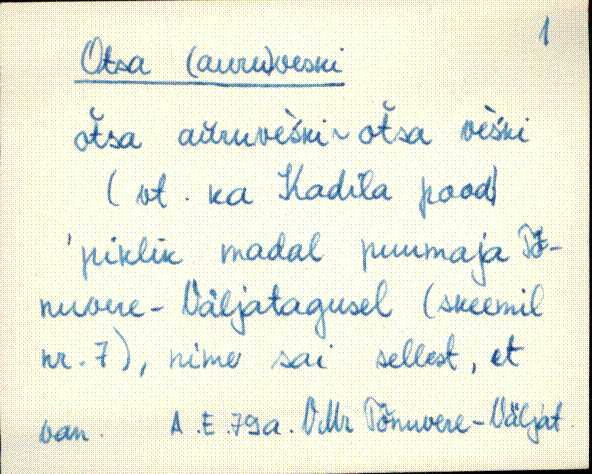 1
Otsa (auru)veski
ot̆sa aŭruvèśki ~ ot̆sa vèśki
(vt. ka Kadila pood)
'piklik madal puumaja Tõ-
nuvere-Väljatagusel (skeemil
nr. 7), nime sai sellest, et
van. A.E. 79a. VMr Tõnuvere-Väljat.